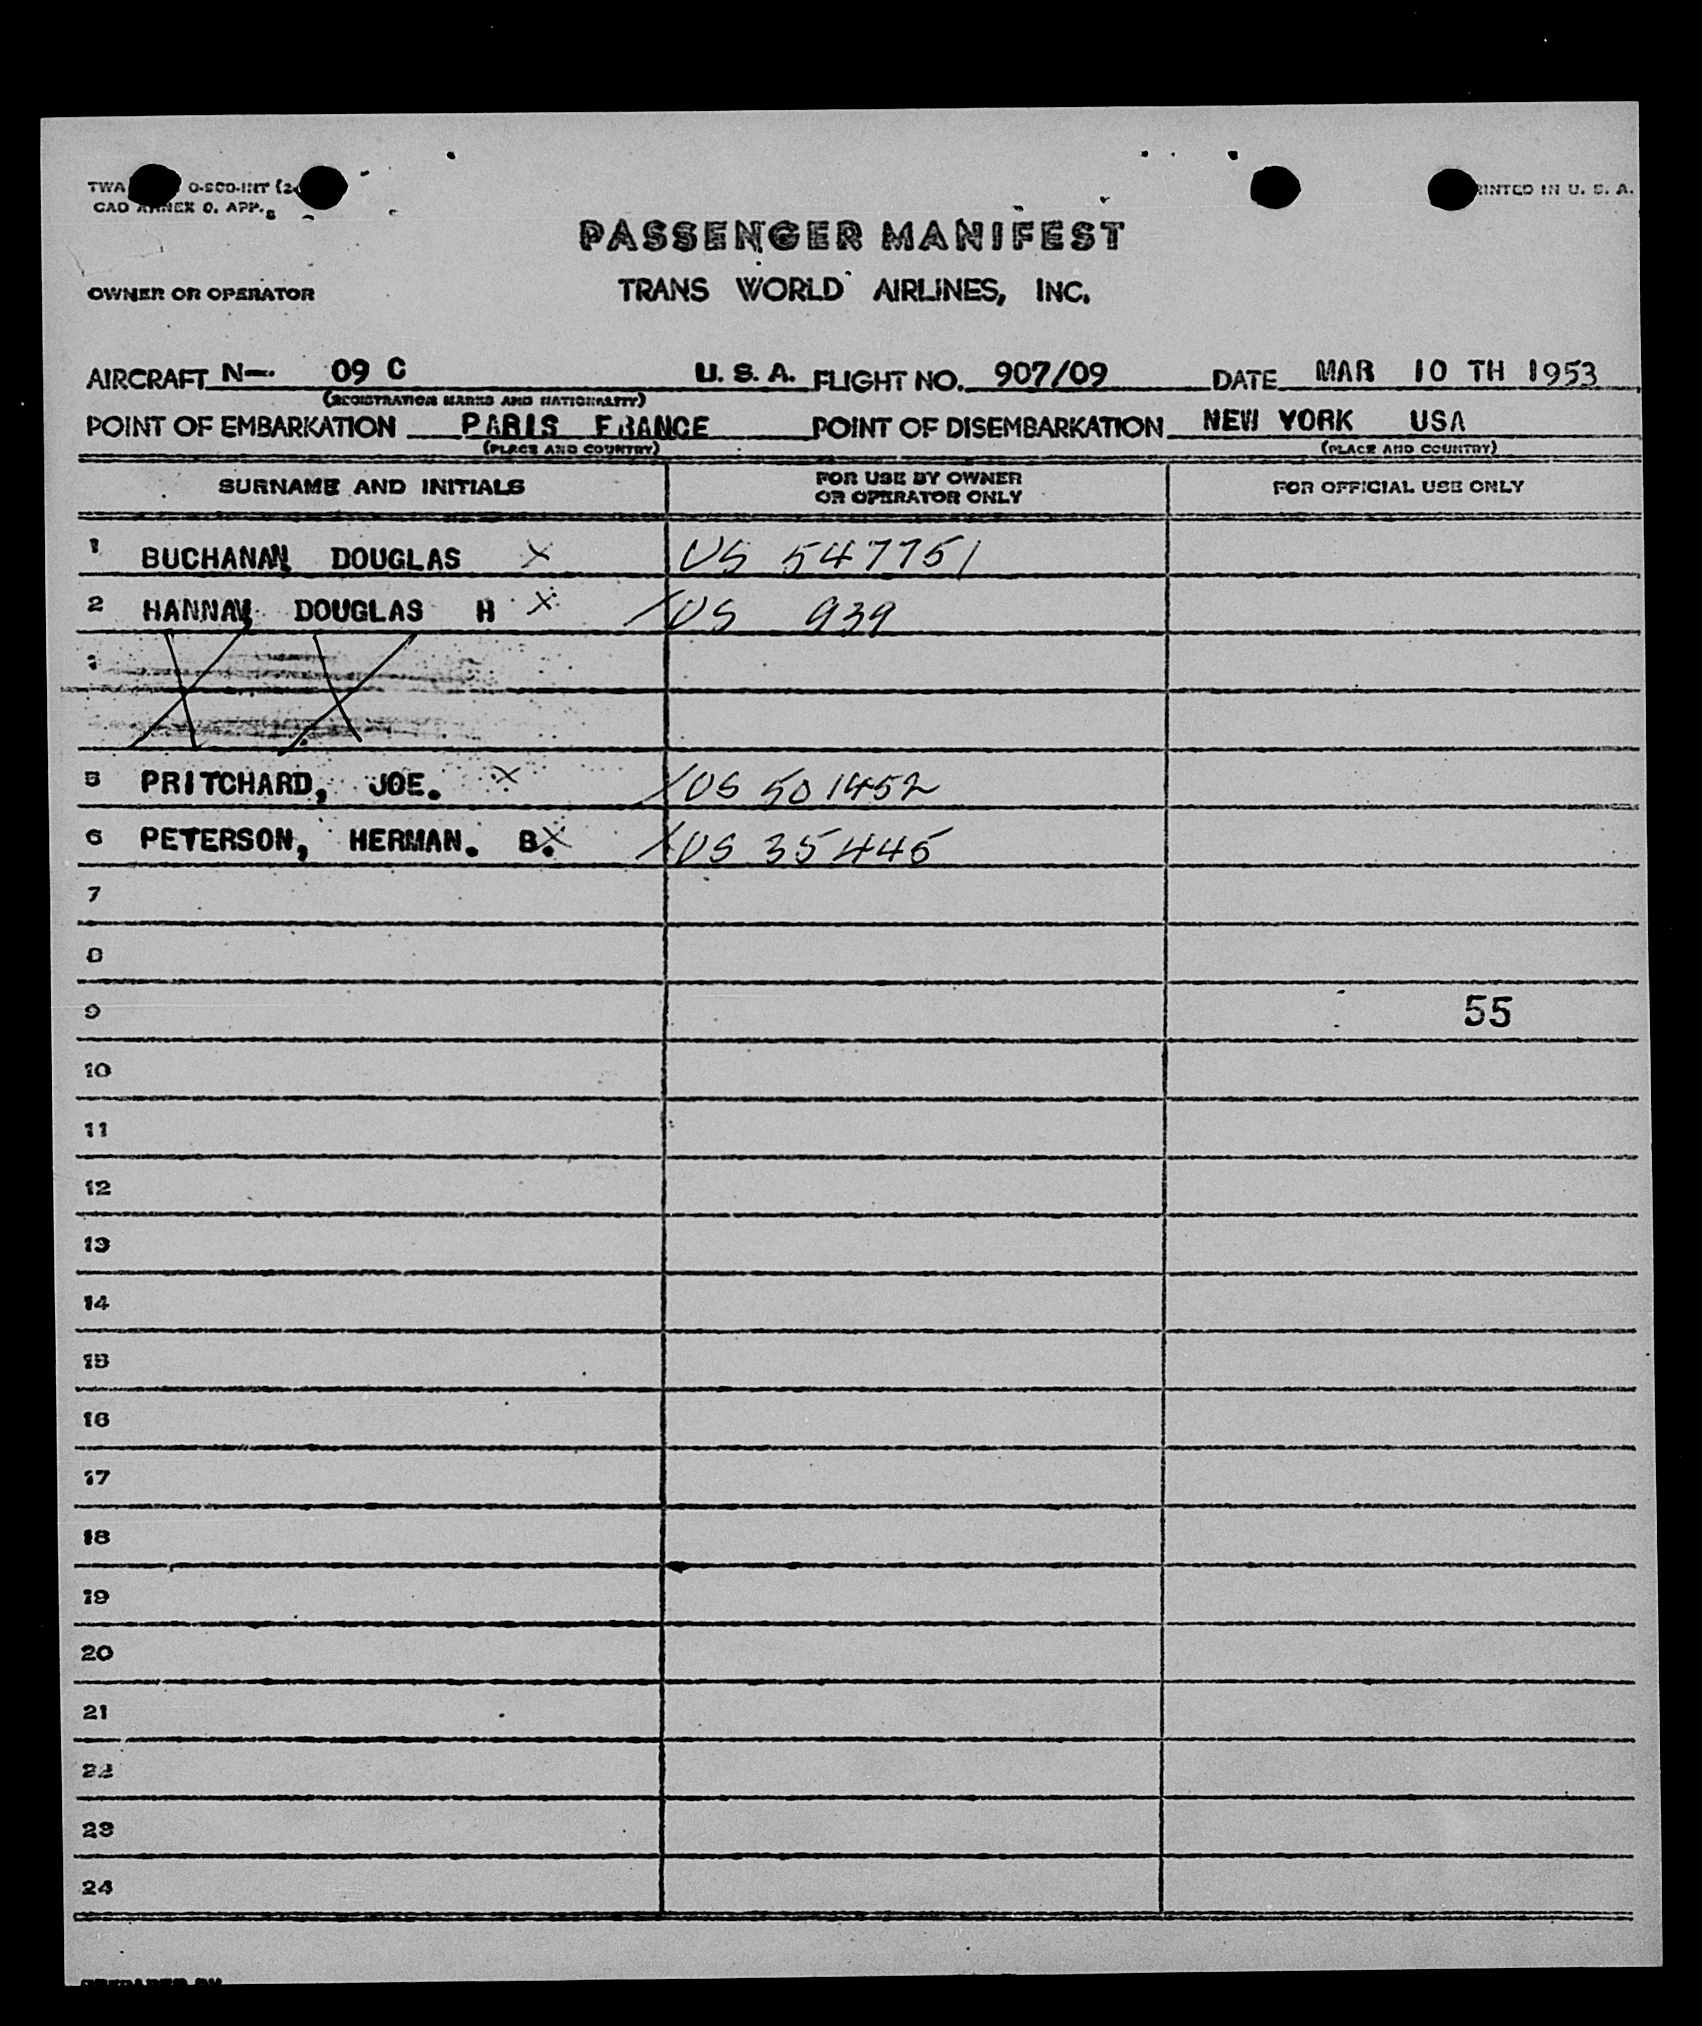 TWA O-SCO-INT (2-
CAO ANNEX 9. APP. 8
PRINTED IN U. S. A.
PASSENGER MANIFEST
OWNER OR OPERATOR TRANS WORLD AIRLINES, INC.
AIRCRAFT N—. 09 C U. S. A. FLIGHT NO. 907/09 DATE MAR 10 TH 1953
(REGISTRATION MARKS AND NATIONALITY)
POINT OF EMBARKATION PARIS FRANCE POINT OF DISEMBARKATION NEW YORK USA
(PLACE AND COUNTRY) (PLACE AND COUNTRY)
SURNAME AND INITIALS FOR USE BY OWNER OR OPERATOR ONLY FOR OFFICIAL USE ONLY
1 BUCHANAN, DOUGLAS X US 547751
2 HANNAY, DOUGLAS H X US 939
5 PRITCHARD, JOE. X US 501452
6 PETERSON, HERMAN. B. X US 35445
7
8
9 55
10
11
12
13
14
15
16
17
18
19
20
21
22
23
24
PREPARED BY